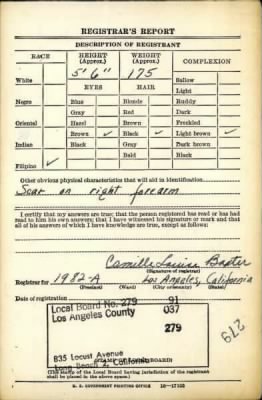 REGISTRAR'S REPORT
DESCRIPTION OF REGISTRANT
RACE HEIGHT (Approx.) WEIGHT (Approx.) COMPLEXION
5' 6" 175
White Sallow
EYES HAIR Light
Negro Blue Blonde Ruddy
Gray Red Dark
Oriental Hazel Brown Freckled
Brown ✓ Black ✓ Light brown ✓
Indian Black Gray Dark brown
Bald Black
Filipino ✓
Other obvious physical characteristics that will aid in identification
Scar on right forearm
I certify that my answers are true; that the person registered has read or has had read to him his own answers; that I have witnessed his signature or mark and that all of his answers of which I have knowledge are true, except as follows:
Camille Louise Baxter
(Signature of registrar)
Registrar for 1982-A Los Angeles, California
(Precinct) (Ward) (City or county) (State)
Date of registration
Local Board No. 279 91
Los Angeles County 037
279
279
835 Locust Avenue
Long Beach 2, California
(STAMP OF LOCAL BOARD)
(The stamp of the Local Board having jurisdiction of the registrant
shall be placed in the above space.)
U. S. GOVERNMENT PRINTING OFFICE 16—17105